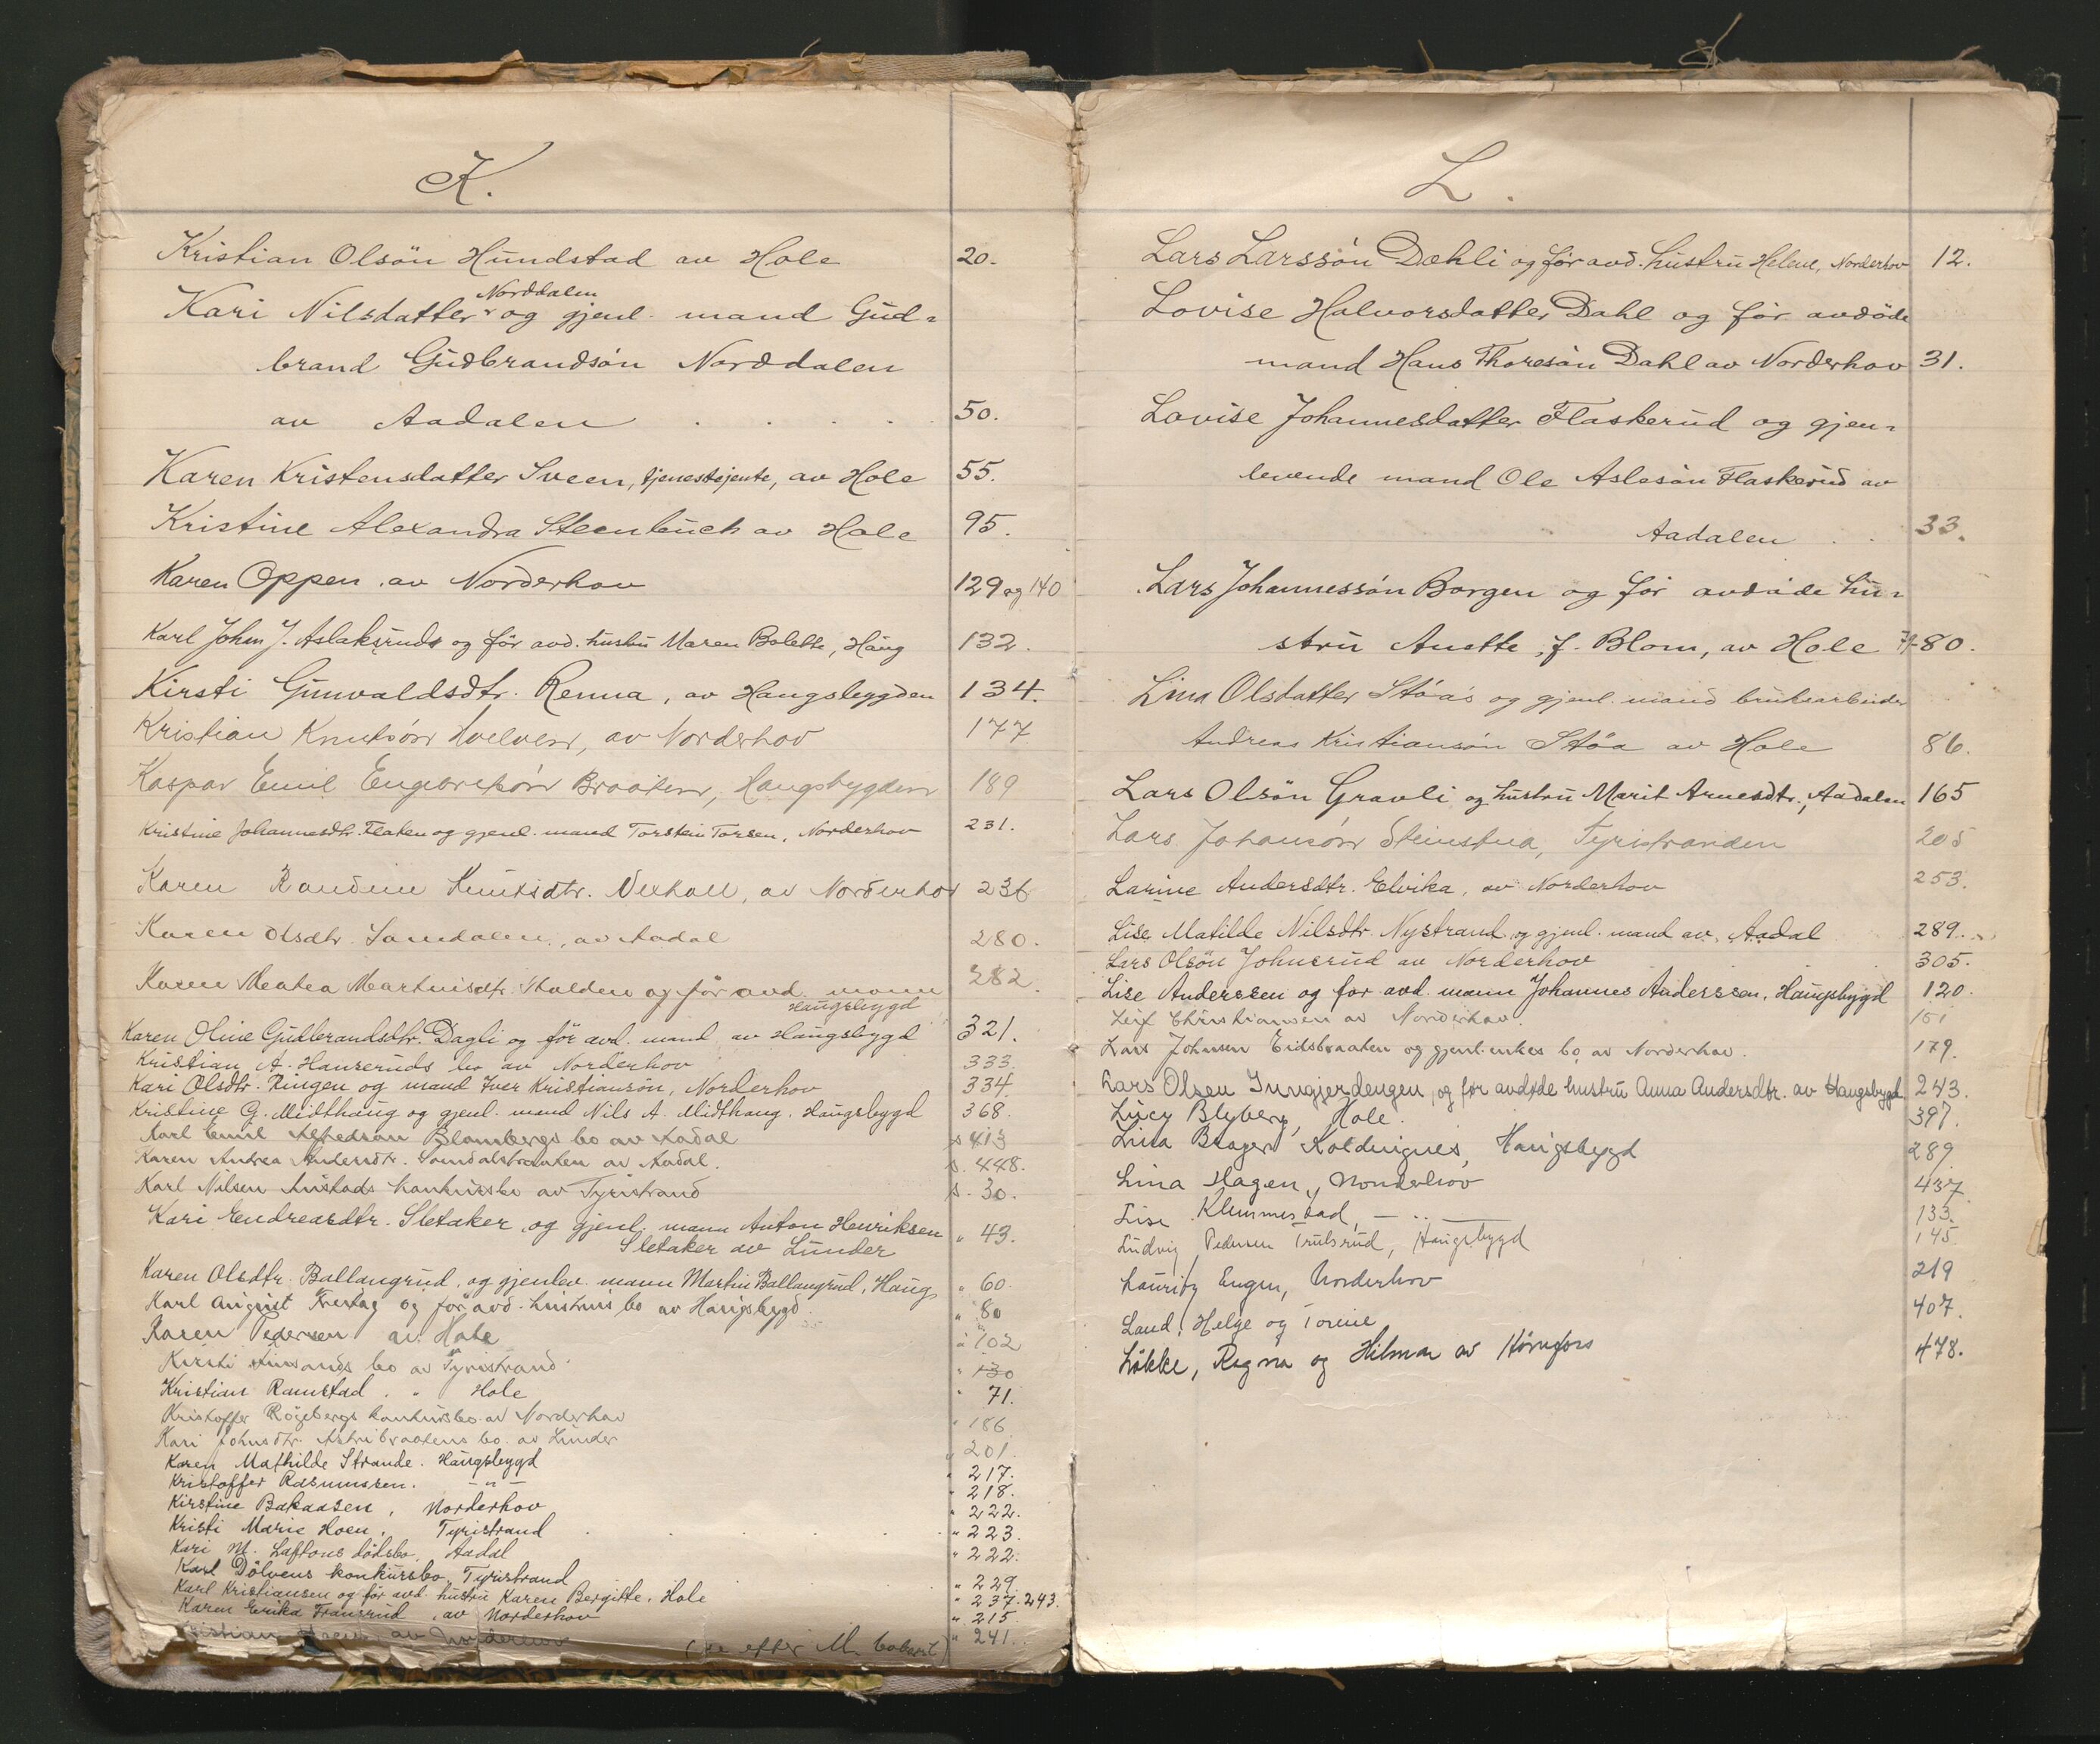 K.
Kristian Olsön Hundstad av Hole 20.
Norddalen
Kari Nilsdatter og gjenl. mand Gud-
brand Gudbrandsön Norddalen
av Aadalen . . . . 50.
Karen Kristensdatter Sveen, tjenestejente, av Hole 55.
Kristine Alexandra Steenbuch av Hole 95.
Karen Oppen av Norderhov 129 og 140
Karl Johan J. Aslaksruds og för avd. hustru Maren Bolette, Haug 132.
Kirsti Gunvaldsdtr. Renna, av Haugsbygden 134.
Kristian Knutsön Hvelven, av Norderhov 177
Kaspar Emil Engebretsön Braaten, Haugsbygden 189
Kristine Johannesdtr. Flaken og gjenl. mand Torstein Torsen, Norderhov 231.
Karen Randine Knutsdtr. Vexhall, av Norderhov 236
Karen Olsdtr. Sandalen, av Aadal 280.
Karen Mathea Martinsdtr. Halden og för avd. mann 282.
Haugsbygd
Karen Oline Gudbrandsdtr. Dagli og för avd. mand av Haugsbygd 321.
Kristian A. Hanseruds bo av Norderhov 333.
Kari Olsdtr. Ringen og mand Iver Kristiansön, Norderhov 334.
Kristine G. Midthaug og gjenl. mand Nils A. Midthaug. Haugsbygd 368.
Karl Emil Alfredsön Blombergs bo av Aadal s 413
Karen Andrea Andersdtr. Sandalsbraaten av Aadal. s. 448.
Karl Nilsen konkursbo av Tyristrand s. 30.
Kari Endreasdtr. Sletaker og gjenl. mann Anton Henriksen
Sletaker av Lunder " 43.
Karen Olsdtr. Ballangrud, og gjenlev. mann Martin Ballangrud, Haug " 60.
Karl August Freitag og för avd. hustrus bo av Haugsbygd. " 80
Karen Pedersen av Hole " 102
Kirsti bo av Tyristrand " 130
Kristian Ramstad . " Hole " 71.
Kristoffer Rögebergs konkursbo av Norderhov " 186
Kari Johnsdtr. bo av Lunder " 201.
Karen Mathilde Strande. Haugsbygd " 217.
Kristoffer Rasmussen. — " — " 218.
Kirstine Bakaasen, Norderhov " 222.
Kristi Marie Hoen, Tyristrand . . . . " 223.
Kari M. Laftons dödsbo, Aadal " 222.
Karl Dölvens konkursbo, Tyristrand " 229.
Karl Kristiansen og för avd. hustru Karen Bergitte. Hole " 237. 243.
Karen Erika Fransrud, av Norderhov " 215.
Kristian av Norderhov (se efter M. " 241.
L.
Lars Larssön Dæhli og för avd. hustru Helene, Norderhov 12.
Lovise Halvorsdatter Dahl og för avdöde
mand Hans Thoresön Dahl av Norderhov 31.
Lovise Johannesdatter Flaskerud og gjen-
levende mand Ole Aslesön Flaskerud av
Aadalen . . 33.
Lars Johannessön Borgen og för avdöde hu-
stru Anette, f. Blom, av Hole 79-80.
Lina Olsdatter Stöa's og gjenl. mand bruksarbeider
Andreas Kristiansön Stöa av Hole 86.
Lars Olsön Gravli og hustru Marit Arnesdtr., Aadalen 165
Lars Johansön Steinstua, Tyristranden 205
Larine Andersdtr. Elvika, av Norderhov 253.
Lise Matilde Nilsdtr. Nystrand og gjenl. mand av Aadal 289.
Lars Olsön Johnsrud av Norderhov 305.
Lise Anderssen og for avd. mann Johannes Anderssen. Haugsbygd 120.
Leif Christiansen av Norderhov. 151
Lars Johnsen Eidsbraaten og gjenl. enkes bo av Norderhov. 179.
Lars Olsen Inngjerdengen, og for avdøde hustru Anna Andersdtr. av Haugsbygd 243.
Lucy Blyberg, Hole. 397.
Lina Brager Koldingnes, Haugsbygd 289
Lina Hagen, Norderhov 437
Lise Klemmestad, — " — 133.
Ludvig Pedersen Trulsrud, Haugsbygd 145.
Lauritz Engen, Norderhov 219
Land, Helge og Torine 407.
Løkke, Ragna og Hilmar av Hönefoss 478.